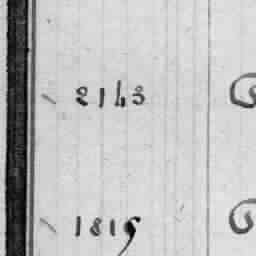 2143
1819